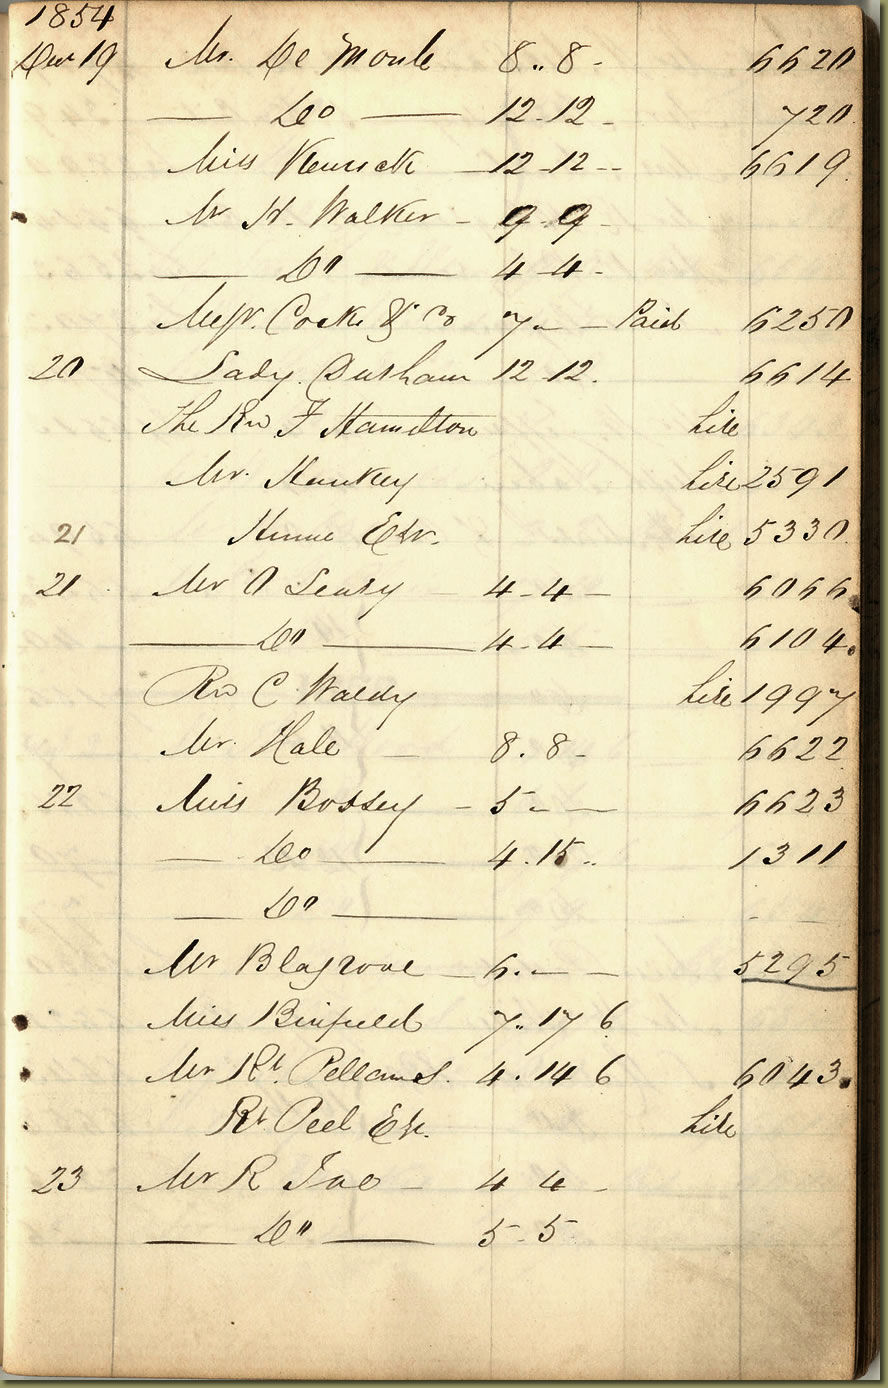 1854
Decr 19 Mr. De Monte 8.. 8 - 6620
— Do — 12-12 - 720
Miss — 12-12 -- 6619
Mr H. Walker - 9-9 -
— Do — 4-4-
Messrs. Cocks & Co 7 - — Paid 6250
20 Lady Durham 12-12. 6614
The Rev F Hamilton hire
Mr. Hankey hire 2591
Esqr. hire 5330
21
21 Mr O Leary - 4-4 - 6066
— Do — 4-4 — 6104
Rev C Waldy hire 1997
Mr. Hale — 8. 8 - 6622
22 Miss Bossey - 5 - — 6623
— Do — 4. 15.. 1311
— Do —
Mr Blagrove — 6. — - 5295
Miss Binfield 7.. 17 6
Mr Rt. 4. 14 6 6043
Rt Peel Esq. hire
23 Mr R - 4 4 -
— Do — 5-5